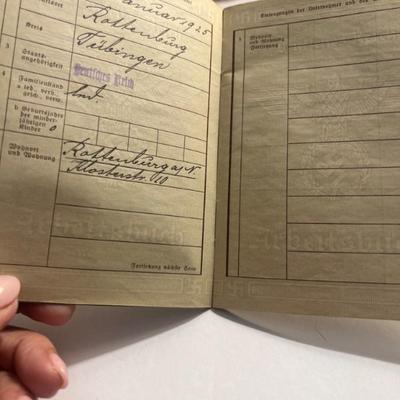 Januar 1925
Rottenburg
Kreis
Tübingen
3 Staats-
angehörigkeit
Deutsches Reich
4 Familienstand
a led., verh.,
gesch., verw.
led.
b Geburtsjahre
der minder-
jährigen
Kinder
0
Wohnort
und Wohnung
Rottenburg a/N.
Klosterstr. 10
Fortsetzung nächste Seite
Arbeitsbuch
Eintragungen der Unternehmer und der
5 Wohnort
und Wohnung
Fortsetzung
Arbeitsbuch